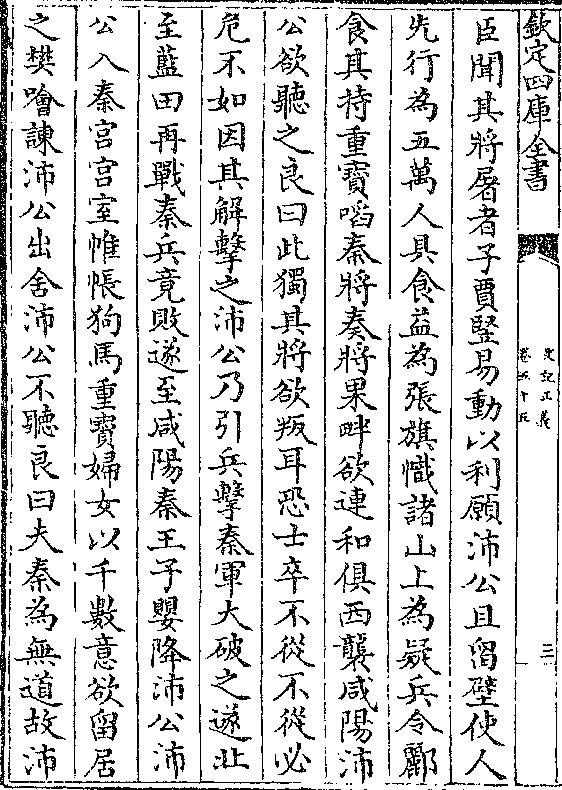 欽定四庫全書
史記正義
卷五十五
三
臣聞其將屠者子賈豎易動以利願沛公且留壁使人
先行為五萬人具食益為張旗幟諸山上為疑兵令酈
食其持重寶啗秦將秦將果畔欲連和俱西襲咸陽沛
公欲聽之良曰此獨其將欲叛耳恐士卒不從不從必
危不如因其解擊之沛公乃引兵擊秦軍大破之遂北
至藍田再戰秦兵竟敗遂至咸陽秦王子嬰降沛公沛
公入秦宮宮室帷帳狗馬重寶婦女以千數意欲留居
之樊噲諫沛公出舍沛公不聽良曰夫秦為無道故沛